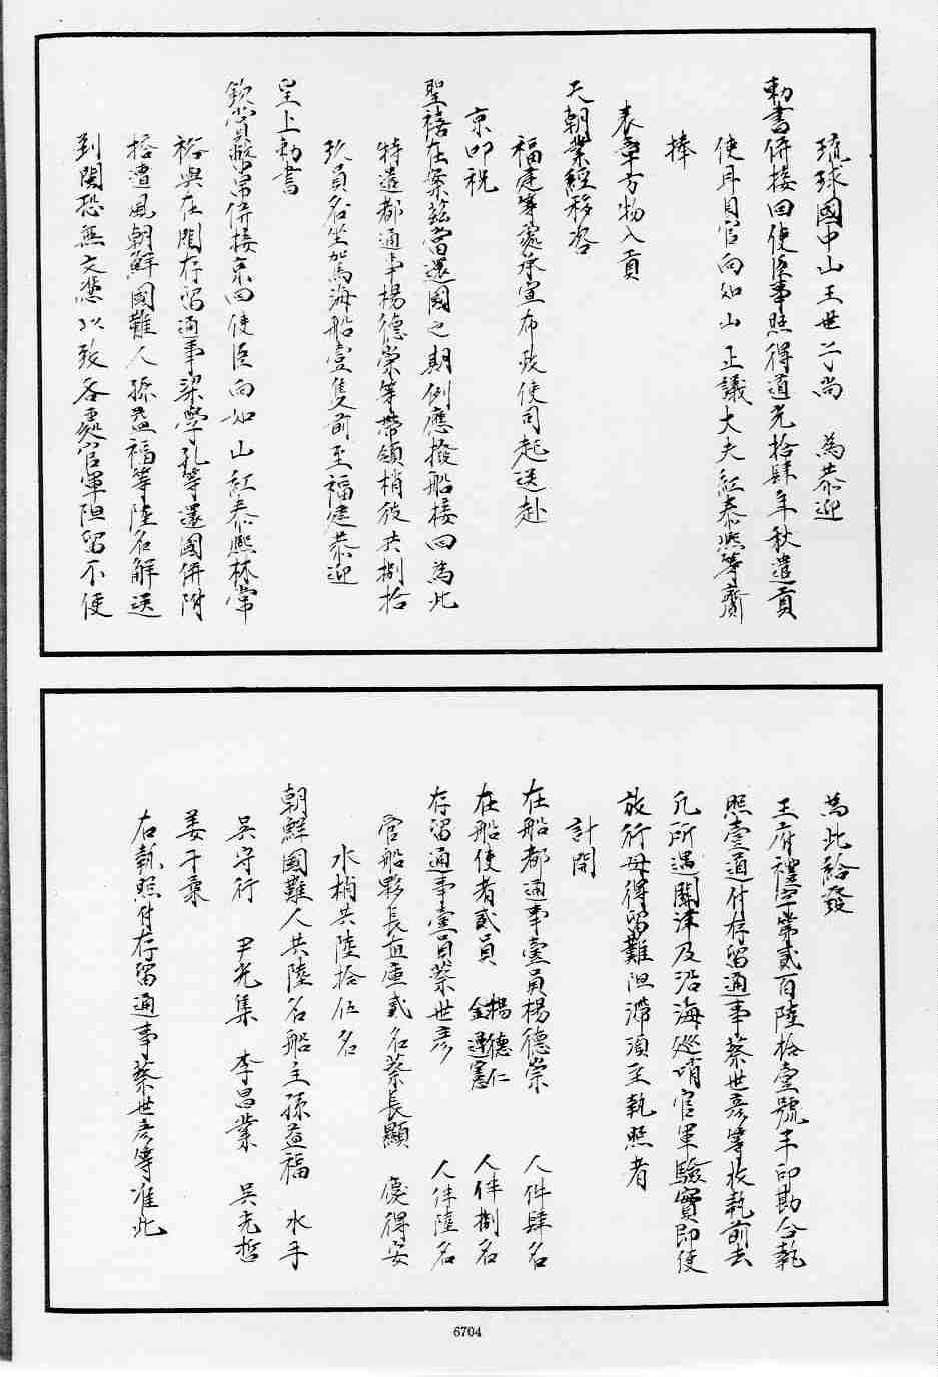 琉球國中山王世子尚　為恭迎
勅書併接回使臣事照得道光拾肆年秋遣貢
使耳目官向如山正議大夫紅泰熙等齎
捧
表章方物入貢
天朝業經移咨
福建等處承宣布政使司起送赴
京叩祝
聖禧在案茲當還國之期例應撥船接回為此
特遣都通事楊德崇等帶領梢役共捌拾
玖員名坐駕海船壹隻前至福建恭迎
皇上勅書
欽賞蟒帛併接京回使臣向如山紅泰熙林常
裕與在閩存留通事梁學孔等還國併附
搭遭風朝鮮國難人孫益福等陸名解送
到閩恐無文憑以致各處官軍阻留不便
為此給發
王府禮字第貳百陸拾壹號半印勘合執
照壹道付存留通事蔡世彥等收執前去
凡所遇關津及沿海巡哨官軍驗實即便
放行毋得留難阻滯須至執照者
計開
在船都通事壹員楊德崇　人伴肆名
在船使者貳員　楊德仁　金運憲　人伴捌名
存留通事壹員蔡世彥　人伴陸名
管船夥長直庫貳名蔡長顯　慶得安
水梢共陸拾伍名
朝鮮國難人共陸名船主孫益福　水手
吳守行　尹光集　李昌業　吳光哲
姜千彙
右執照付存留通事蔡世彥等准此
6704